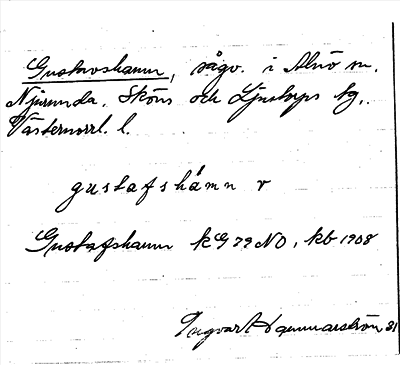 Gustavshamn, sågv. i Alnö sn.
Njurunda, Sköns och Ljustorps tg,.
Västernorrl. l.
gustafshámn v
Gustafshamn kG 79 NO, kb 1908
Ingvar Hammarström 31